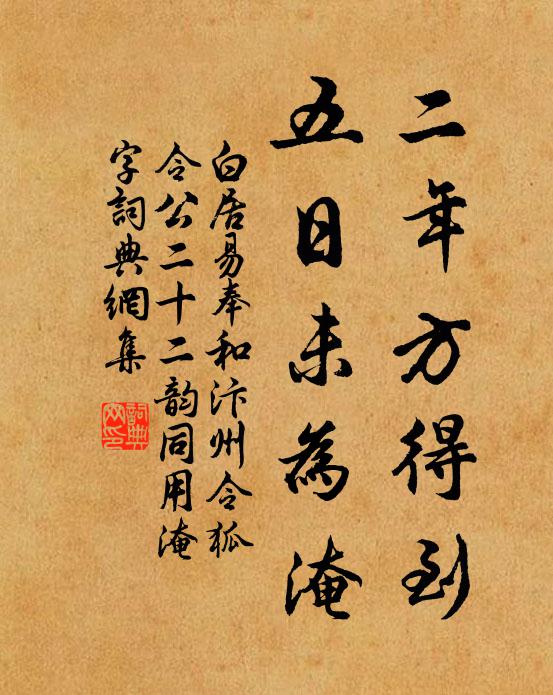 二年方得到
五日未為淹
白居易奉和汴州令狐
令公二十二韵同用淹
字詞典網集
詞典網印